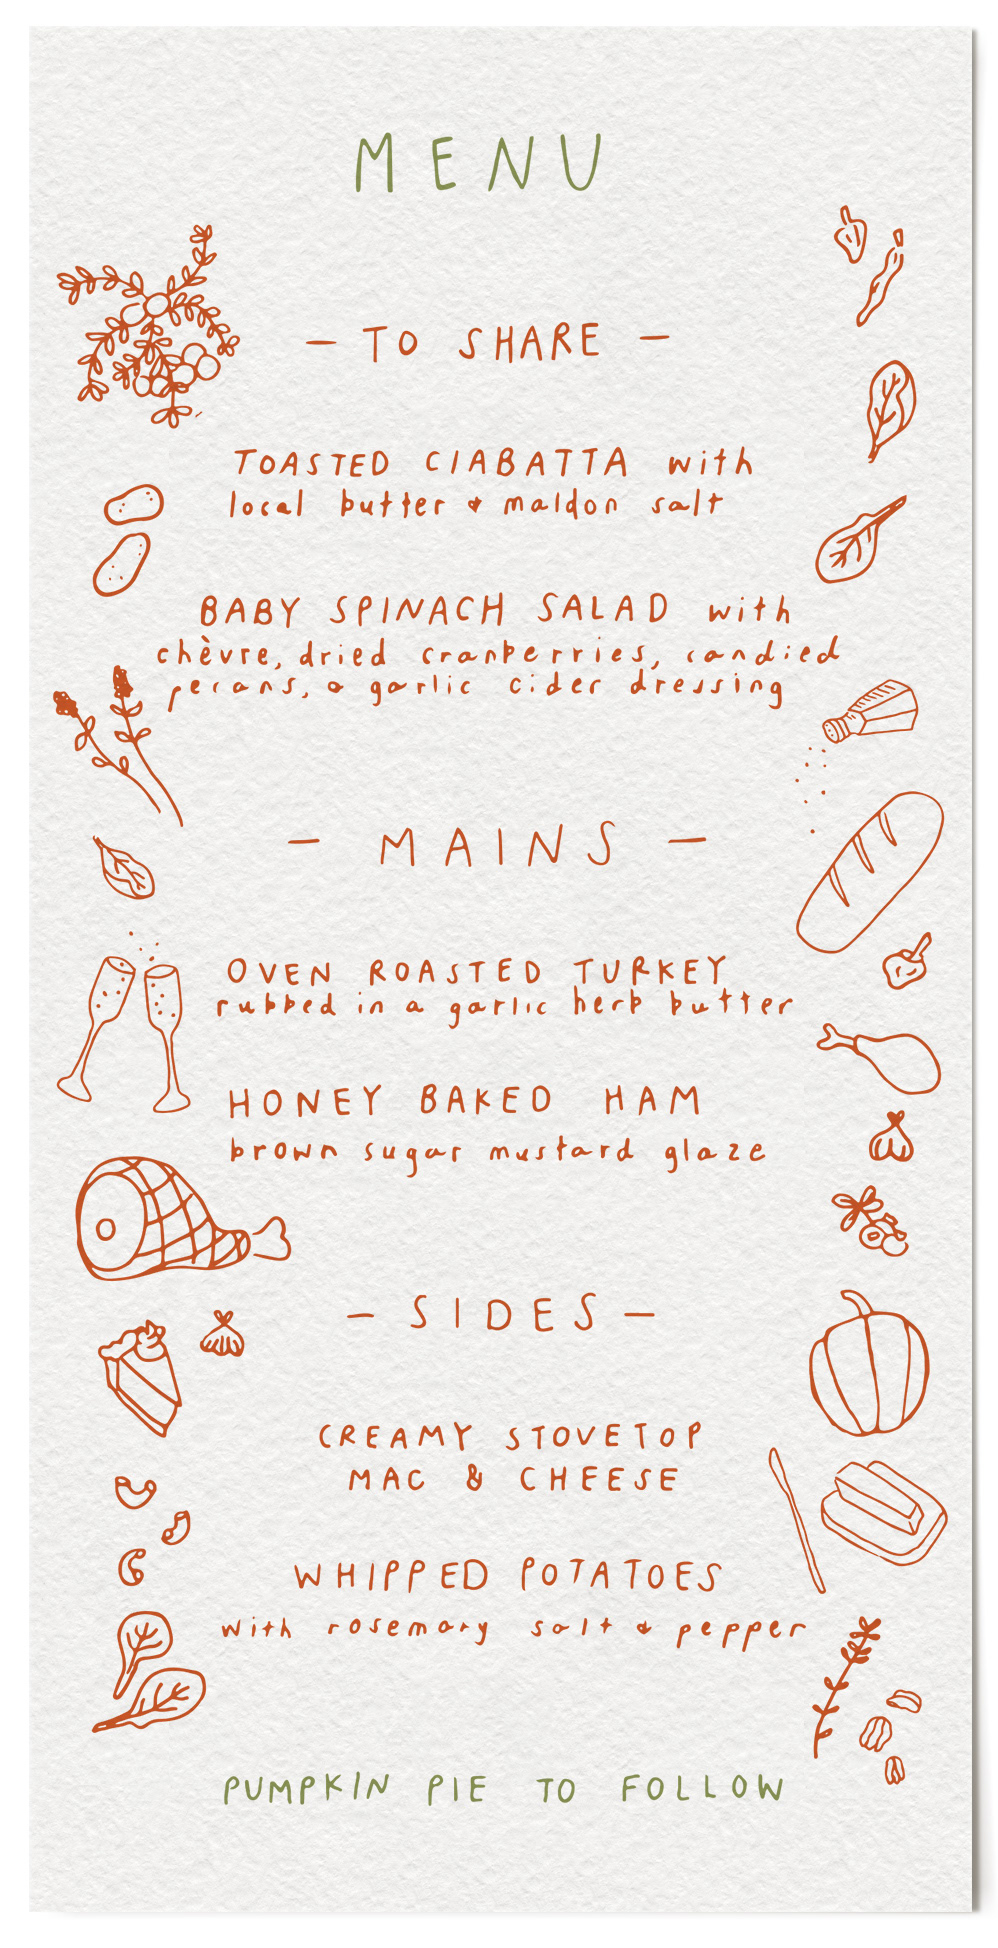 MENU
— TO SHARE —
TOASTED CIABATTA with
local butter & maldon salt
BABY SPINACH SALAD with
chèvre, dried cranberries, candied
pecans, & garlic cider dressing
— MAINS —
OVEN ROASTED TURKEY
rubbed in a garlic herb butter
HONEY BAKED HAM
brown sugar mustard glaze
— SIDES —
CREAMY STOVETOP
MAC & CHEESE
WHIPPED POTATOES
with rosemary salt & pepper
PUMPKIN PIE TO FOLLOW